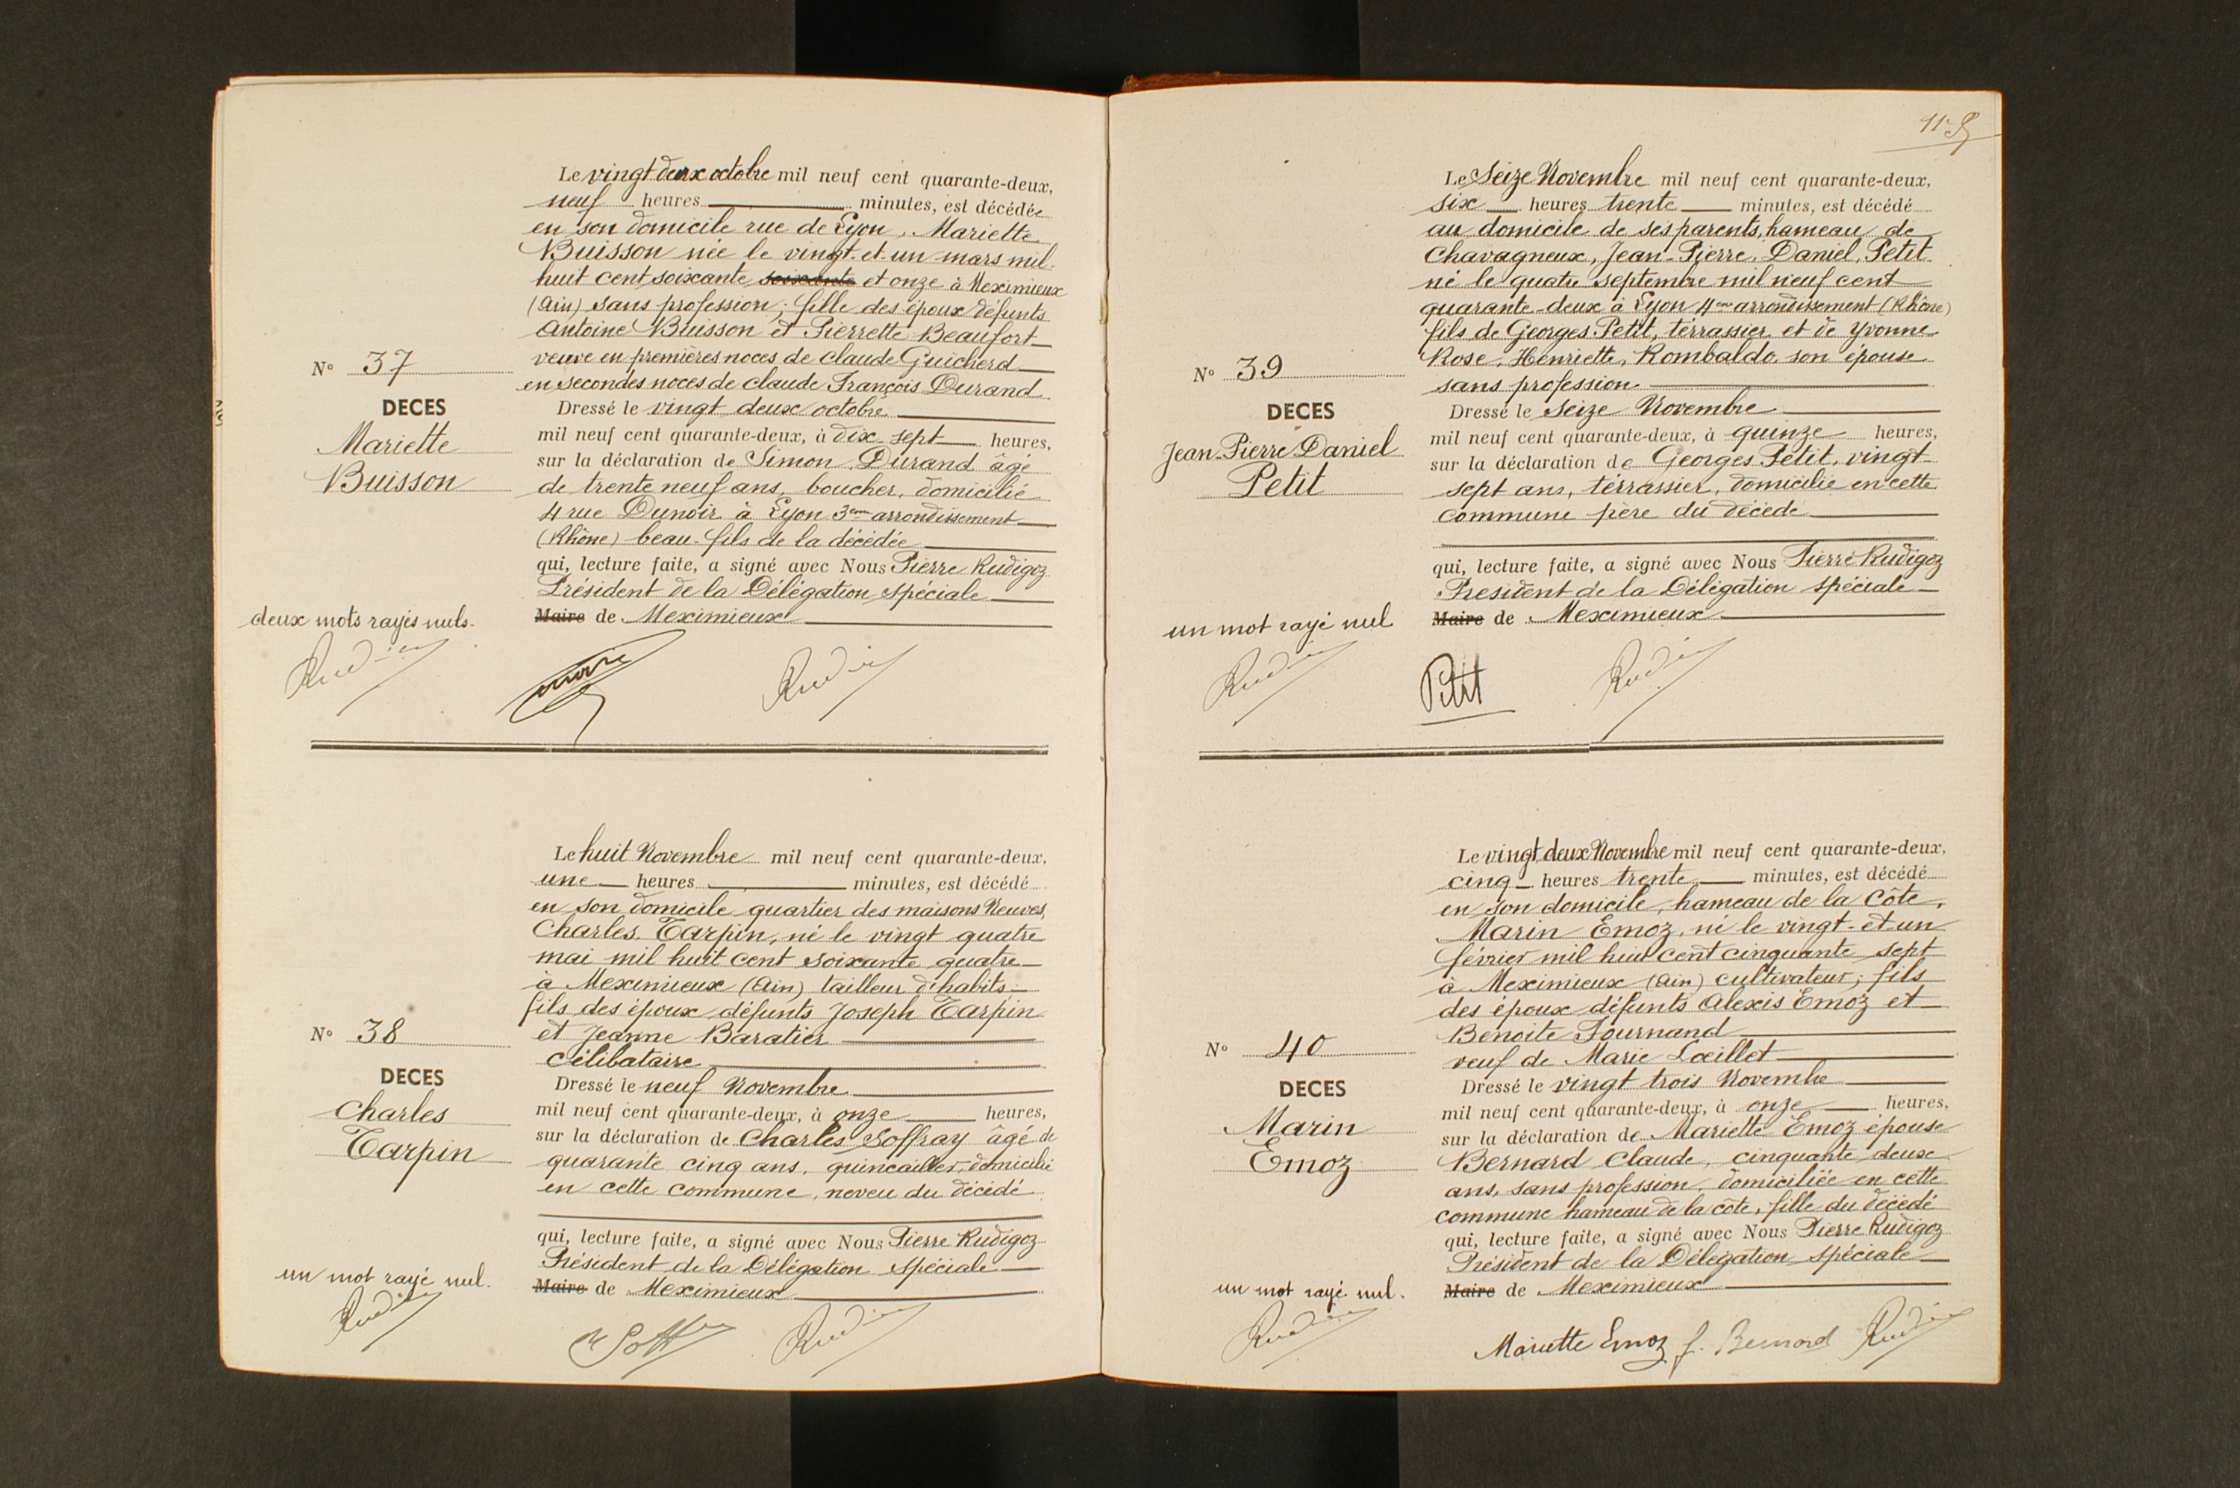 Le vingt deux octobre mil neuf cent quarante-deux,
neuf heures minutes, est décédée
en son domicile rue de Lyon, Mariette
Buisson née le vingt et un mars mil
huit cent soixante soixante et onze à Meximieux
(Ain) sans profession; fille des époux défunts
Antoine Buisson et Pierrette Beaufort
veuve en premières noces de Claude Guicherd
en secondes noces de Claude François Durand
N° 37
DECES
Mariette
Buisson
Dressé le vingt deux octobre
mil neuf cent quarante-deux, à dix sept heures,
sur la déclaration de Simon Durand âgé
de trente neuf ans, boucher, domicilié
4 rue Dunoir à Lyon 3eme arrondissement
(Rhône) beau-fils de la décédée
qui, lecture faite, a signé avec Nous Pierre Rudigoz
Président de la Délégation spéciale
Maire de Meximieux
deux mots rayés nuls.
Le huit Novembre mil neuf cent quarante-deux,
une heures minutes, est décédé
en son domicile quartier des maisons Neuves,
Charles Tarpin, né le vingt quatre
mai mil huit cent soixante quatre
à Meximieux (Ain) tailleur d'habits
fils des époux défunts Joseph Tarpin
et Jeanne Baratier
célibataire
N° 38
DECES
Charles
Tarpin
Dressé le neuf Novembre
mil neuf cent quarante-deux, à onze heures,
sur la déclaration de Charles Soffray âgé de
quarante cinq ans, quincailler, domicilié
en cette commune, neveu du décédé
qui, lecture faite, a signé avec Nous Pierre Rudigoz
Président de la Délégation spéciale
Maire de Meximieux
un mot rayé nul.
Le Seize Novembre mil neuf cent quarante-deux,
six heures trente minutes, est décédé
au domicile de ses parents, hameau de
Chavagneux, Jean-Pierre, Daniel, Petit
né le quatre septembre mil neuf cent
quarante-deux à Lyon 4eme arrondissement (Rhône)
fils de Georges Petit, terrassier et de Yvonne
Rose, Henriette, Rombaldo son épouse
sans profession
N° 39
DECES
Jean-Pierre Daniel
Petit
Dressé le Seize Novembre
mil neuf cent quarante-deux, à quinze heures,
sur la déclaration de Georges Petit, vingt
sept ans, terrassier, domicilié en cette
commune père du décédé
qui, lecture faite, a signé avec Nous Pierre Rudigoz
Président de la Délégation spéciale
Maire de Meximieux
un mot rayé nul
Petit
Le vingt deux Novembre mil neuf cent quarante-deux,
cinq heures trente minutes, est décédé
en son domicile, hameau de la Côte,
Marin Emoz, né le vingt-et un
février mil huit cent cinquante sept
à Meximieux (Ain) cultivateur; fils
des époux défunts Alexis Emoz et
Benoite Journand
veuf de Marie Loeillet
N° 40
DECES
Marin
Emoz
Dressé le vingt trois Novembre
mil neuf cent quarante-deux, à onze heures,
sur la déclaration de Mariette Emoz épouse
Bernard Claude, cinquante deux
ans, sans profession, domiciliée en cette
commune hameau de la côte, fille du décédé
qui, lecture faite, a signé avec Nous Pierre Rudigoz
Président de la Délégation spéciale
Maire de Meximieux
un mot rayé nul.
Mariette Emoz f. Bernard